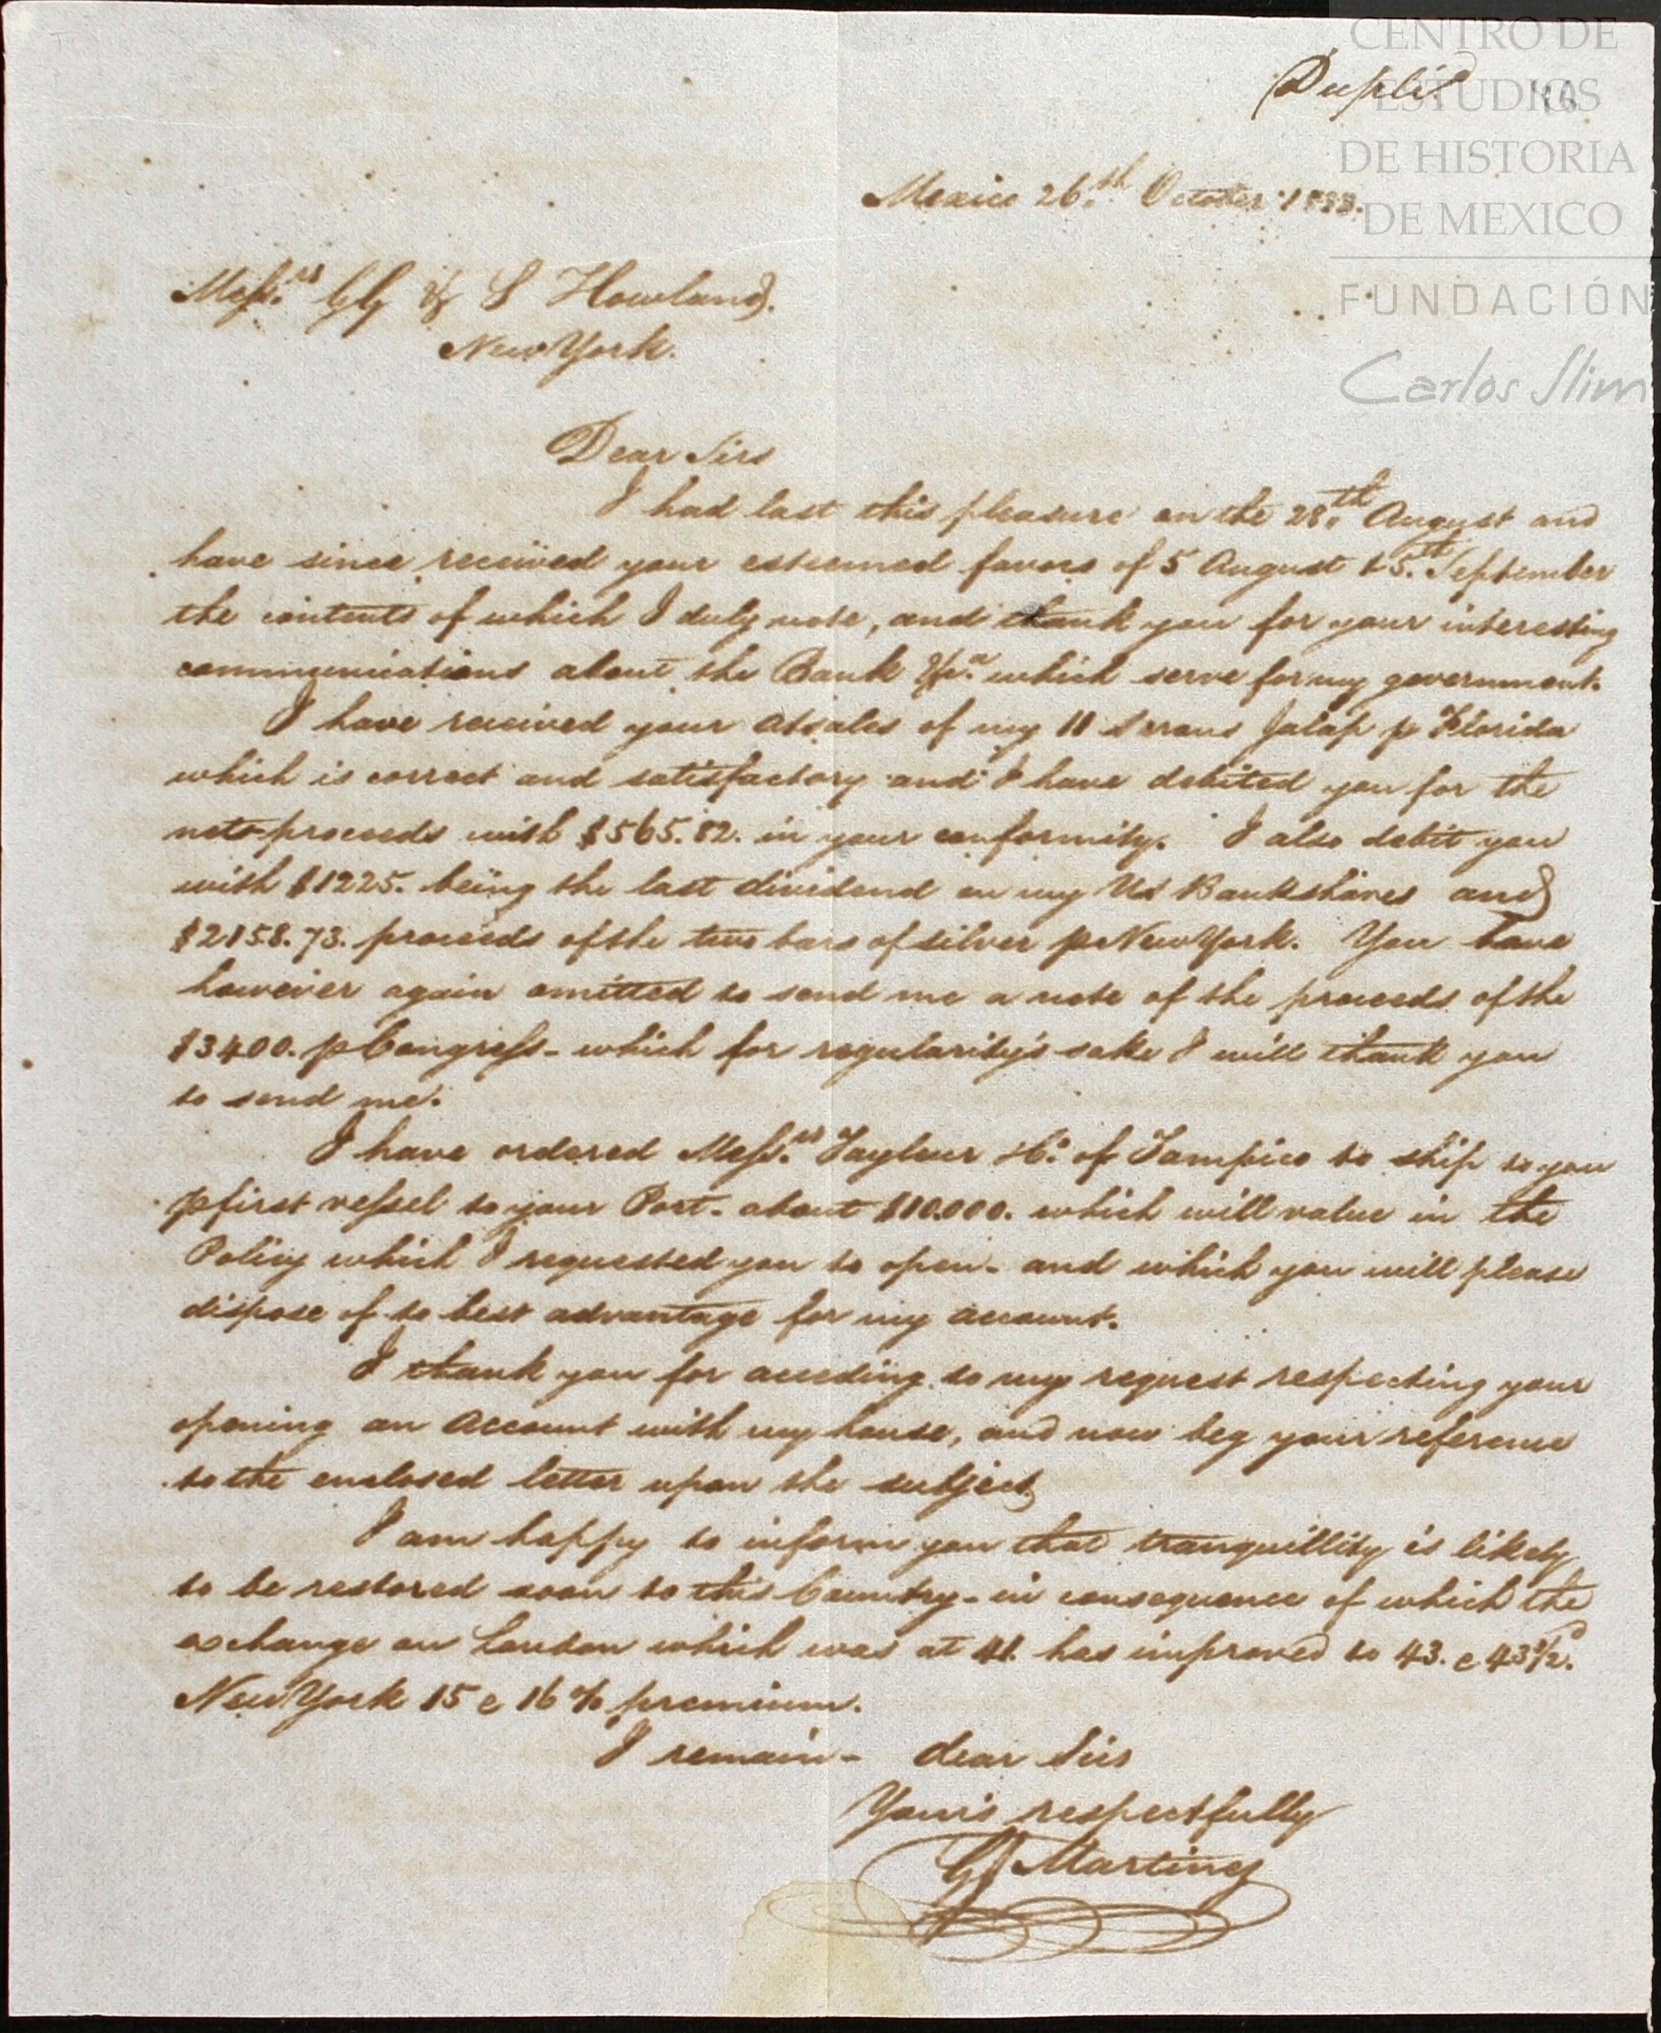 CENTRO DE
ESTUDIOS
DE HISTORIA
DE MEXICO
FUNDACIÓN
Carlos Slim
Dupli
Mexico 26th October 1833.
Messrs GG & S Howland.
New York.
Dear Sirs
I had last this pleasure on the 28th August and
have since received your esteemed favors of 5 August & 5th September
the contents of which I duly note, and thank you for your interesting
communications about the Bank &ca which serve for my government.
I have received your a/sales of my 11 Serons Jalap p Florida
which is correct and satisfactory and I have debited you for the
netto proceeds with $565.82. in your conformity. I also debit you
with $1225. being the last dividend on my US Bankshares and
$2158.73. proceeds of the two bars of silver p New York. You have
however again omitted to send me a note of the proceeds of the
$3400. p Congress - which for regularity's sake I will thank you
to send me.
I have ordered Messrs Tayleur &Co. of Tampico to ship to you
p first vessel to your Port - about $10.000. which will value in the
Policy which I requested you to open - and which you will please
dispose of to best advantage for my account.
I thank you for acceding to my request respecting your
opening an account with my house, and now beg your reference
to the enclosed letter upon the subject
I am happy to inform you that tranquillity is likely
to be restored soon to this Country - in consequence of which the
exchange on London which was at 41. has improved to 43. @ 43½d.
New York 15 @ 16 % premium.
I remain - dear Sirs
Your's respectfully